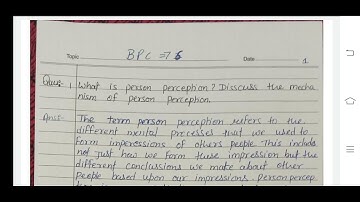 Topic BPC ⇒ 6 Date 1
Ques- 1 What is person perception? Disscuss the mecha
nism of person perception.
Ans:- The term person perception refers to the
different mental processes that we used to
form impressions of others people. This includs
not just how we form these impression but the
different conclussions we make about other
people based upon our impressions. Person percep